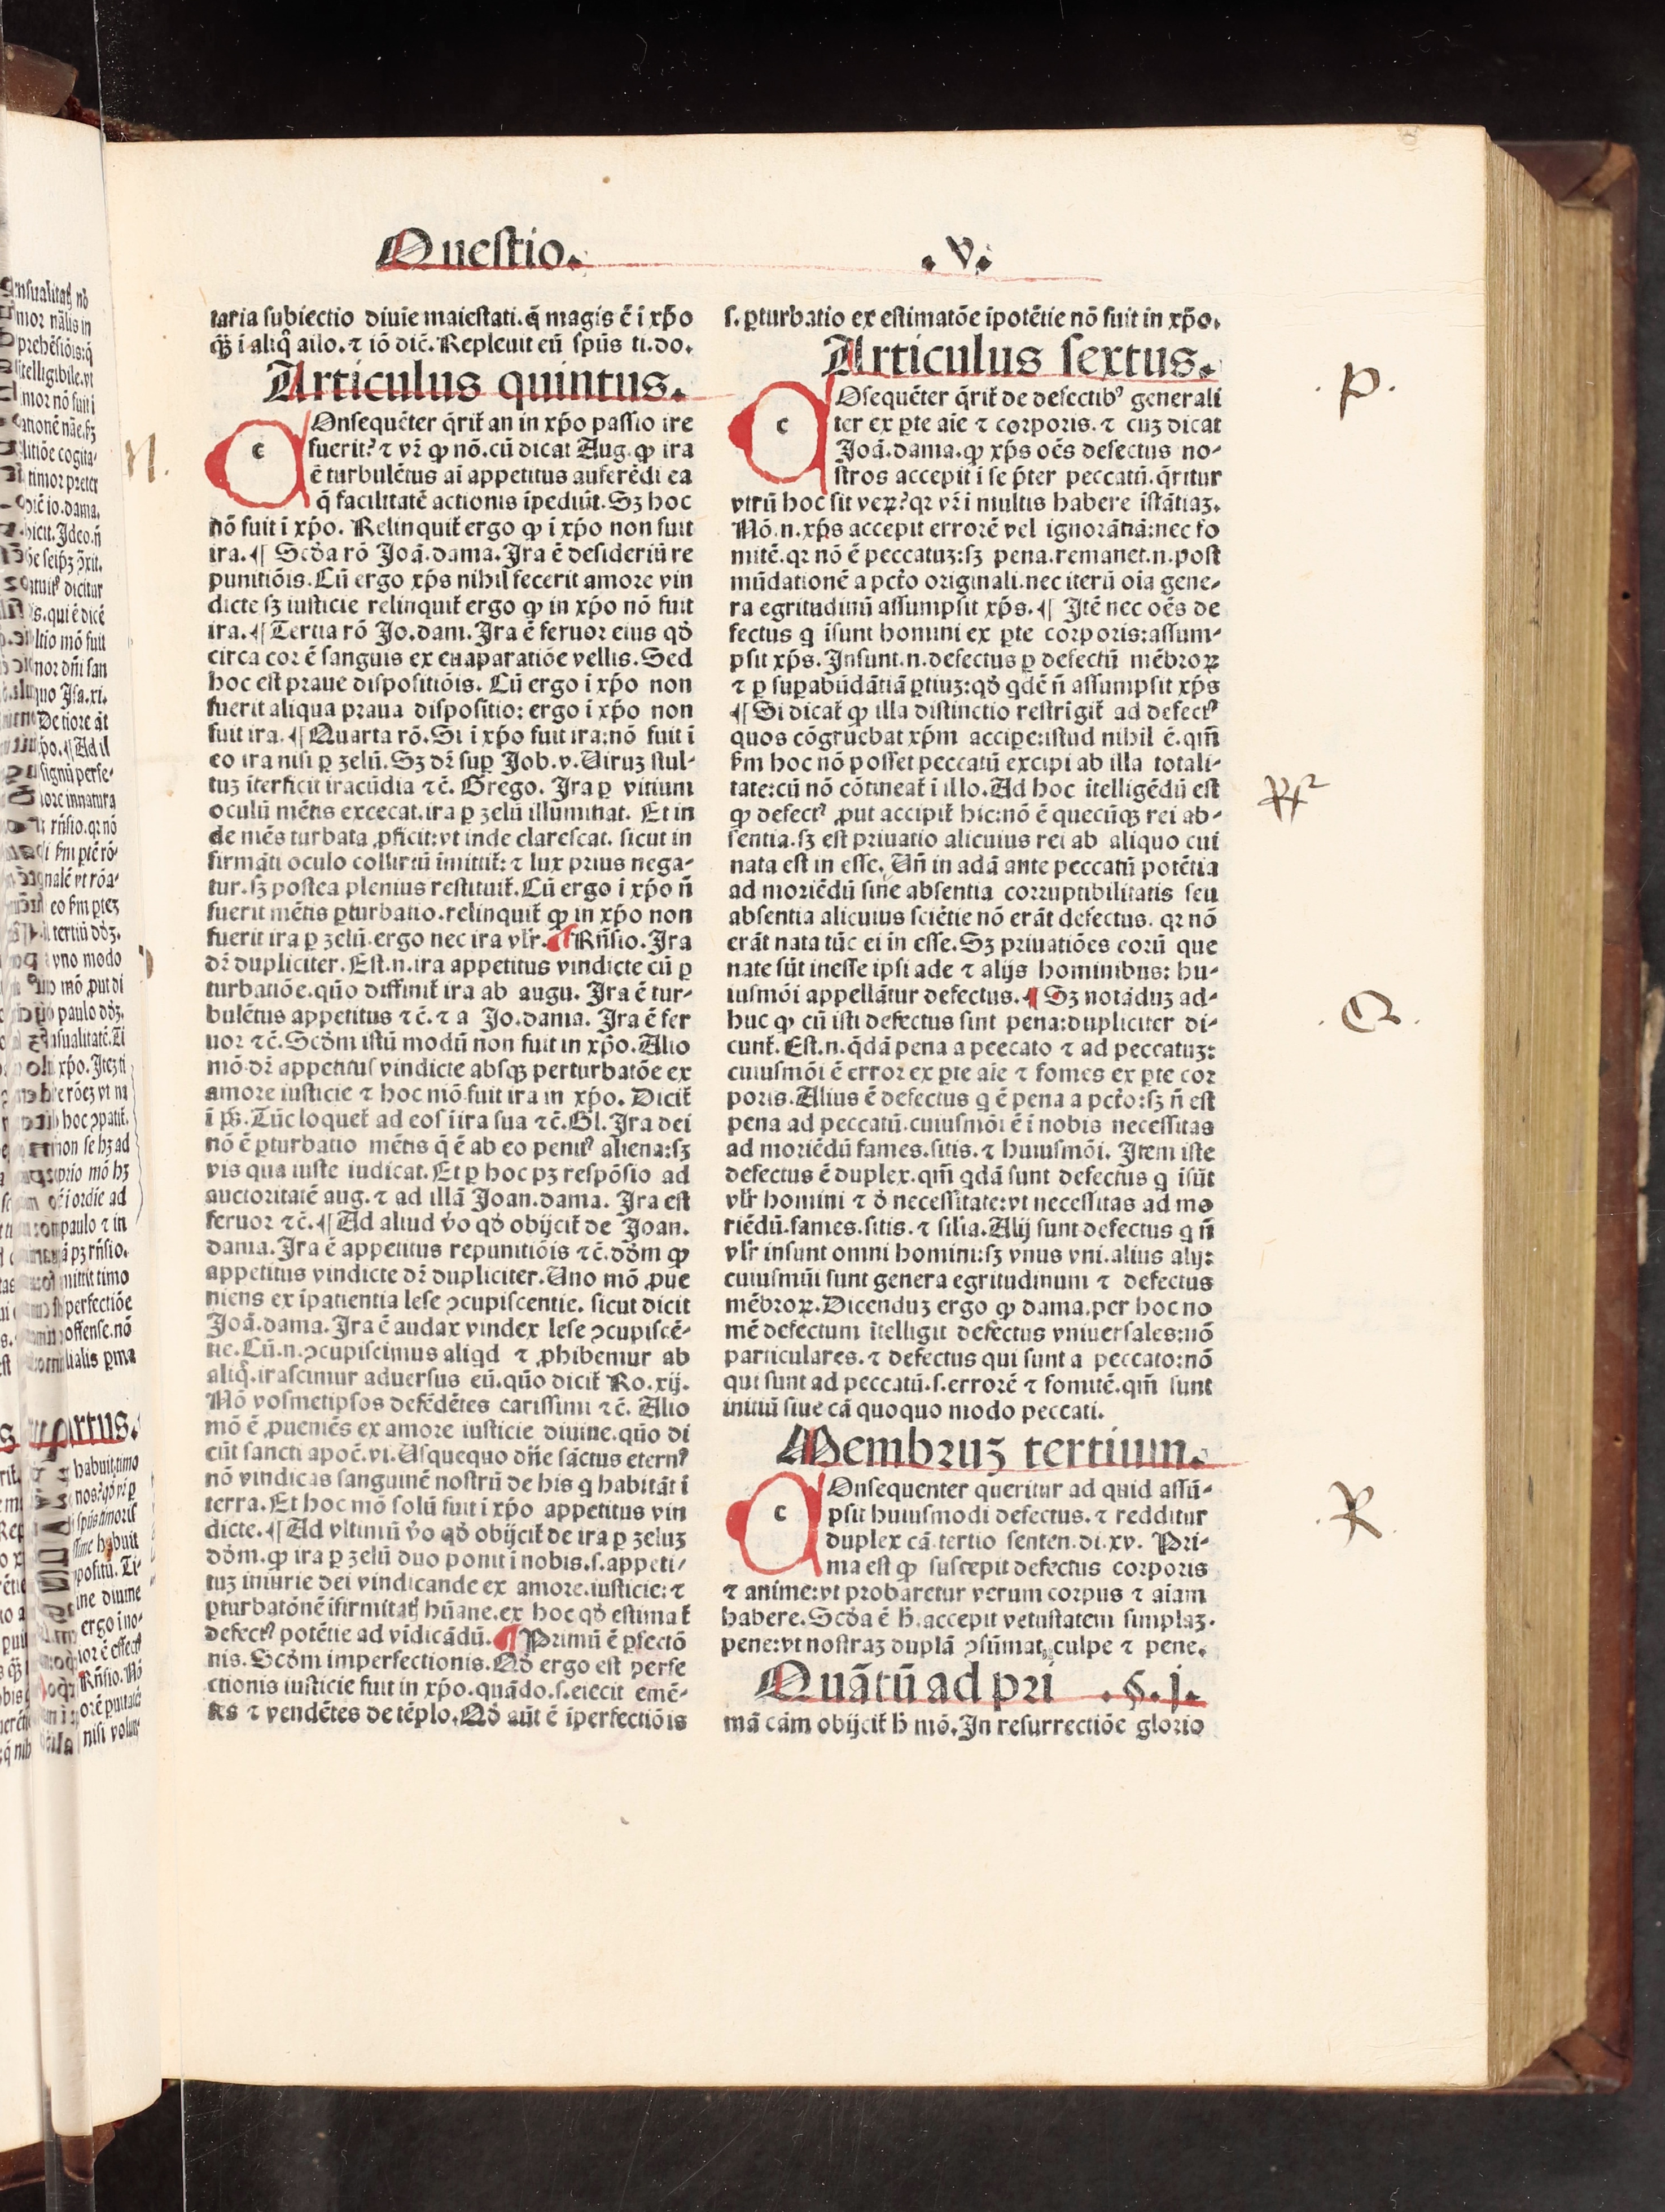 Questio. .V.
taria subiectio diuīe maiestati.q̄ magis ē i xp̄o
qʒ̄ i aliq̊ aīlo.⁊ iō dic̄.Repleuit eū sp̄us ti.do.
Articulus quintus.
COnsequēter q̄rit̄ an in xp̄o passio ire
fuerit?⁊ vr̄ ꝙ nō.cū dicat Aug.ꝙ ira
ē turbulētus ai appetitus auferēdi ea
q̄ facilitatē actionis īpediūt.Sʒ hoc
nō fuit i xp̄o. Relinquit̄ ergo ꝙ i xp̄o non fuit
ira.¶ Scḋa rō Joā.dama.Ira ē desideriū re
punitiōis.Cū ergo xp̄s nihil fecerit amore vin
dicte sʒ iusticie relinquit̄ ergo ꝙ in xp̄o nō fuit
ira.¶ Tertia rō Jo.dam.Ira ē feruor eius qḋ
circa cor ē sanguis ex euaparatiōe vellis.Sed
hoc est praue dispositiōis. Cū ergo i xp̄o non
fuerit aliqua praua dispositio: ergo i xp̄o non
fuit ira.¶ Quarta rō.Si i xp̄o fuit ira:nō fuit i
eo ira nisi ꝑ zelū.Sʒ dr̄ suꝑ Job.v.Uiruʒ stul-
tuʒ īterficit iracūdia ⁊c̄. Grego. Ira ꝑ vitium
oculū mētis excecat.ira ꝑ zelū illuminat. Et in
de mēs turbata ꝓficit:vt inde clarescat. sicut in
firmāti oculo collirtū īmittit̄:⁊ lux prius nega-
tur.sʒ postea plenius restituit̄.Cū ergo i xp̄o n̄
fuerit mētis ꝑturbatio.relinquit̄ ꝙ in xp̄o non
fuerit ira ꝑ zelū.ergo nec ira vlr̄.¶ Rn̄sio.Ira
dr̄ dupliciter.Est.n.ira appetitus vindicte cū ꝑ
turbatiōe.quō diffinit̄ ira ab augu. Ira ē tur-
bulētus appetitus ⁊c̄.⁊ a Jo.dama. Ira ē fer
uor ⁊c̄.Scḋm istū modū non fuit in xp̄o.Alio
mō dr̄ appetitus vindicte absqʒ perturbatōe ex
amore iusticie ⁊ hoc mō fuit ira in xp̄o. Dicit̄
ī ps̄.Tūc loquet̄ ad eos i ira sua ⁊c̄.Gl.Ira dei
nō ē ꝑturbatio mētis q̄ ē ab eo penit⁹ aliena:sʒ
vis qua iuste iudicat.Et ꝑ hoc pʒ respōsio ad
auctoritatē aug.⁊ ad illā Joan.dama. Ira est
feruor ⁊c̄.¶ Ad aliud v̊o qḋ obijcit̄ de Joan.
dama.Ira ē appetitus repunitiōis ⁊c̄.dḋm ꝙ
appetitus vindicte dr̄ dupliciter.Uno mō ꝓue
niens ex īpatientia lese ꝯcupiscentie. sicut dicit
Joā.dama.Ira ē audax vindex lese ꝯcupiscē-
tie.Cū.n.ꝯcupiscimus aliqd ⁊ ꝓhibemur ab
aliq̊.irascimur aduersus eū.quō dicit̄ Ro.xij.
Nō vosmetipsos defēdētes carissimi ⁊c̄. Alio
mō ē ꝓueniēs ex amore iusticie diuine.quō di
cūt sancti apoc̄.vi.Usquequo dn̄e sāctus etern⁹
nō vindicas sanguinē nostrū de his q habitāt i
terra.Et hoc mō solū fuit i xp̄o appetitus vin
dicte.¶ Ad vltimū v̊o qḋ obijcit̄ de ira ꝑ zeluʒ
dḋm.ꝙ ira ꝑ zelū duo ponit i nobis.s.appeti-
tuʒ iniurie dei vindicande ex amore.iusticie:⁊
ꝑturbatōnē ifirmitatꝭ hūane.ex hoc qḋ estimat̄
defect⁹ potētie ad vīdicādū.¶ Primū ē ꝑfectō
nis.Scḋm imperfectionis.Qḋ ergo est perfe
ctionis iusticie fuit in xp̄o.quādo.s.eiecit emē-
tes ⁊ vendētes de tēplo.Qḋ aūt ē īperfectiōis
s.ꝑturbatio ex estimatōe īpotētie nō fuit in xp̄o.
Articulus sextus.
COsequēter q̄rit̄ de defectib⁹ generali
ter ex ꝑte aīe ⁊ corporis.⁊ cuʒ dicat
Joā.dama.ꝙ xp̄s oēs defectus no-
stros accepit i se p̄ter peccatū.q̄ritur
vtrū hoc sit veꝝ?qr vr̄ i multis habere īstātiaʒ.
Nō.n.xp̄s accepit errorē vel ignorātiā:nec fo
mitē.qr nō ē peccatuʒ:sʒ pena.remanet.n.post
mūdationē a pct̄o originali.nec iterū oīa gene-
ra egritudinū assumpsit xp̄s.¶ Itē nec oēs de
fectus q īsunt homini ex ꝑte corporis:assum-
psit xp̄s.Insunt.n.defectus ꝑ defectū mēbroꝝ
⁊ ꝑ suꝑabūdātiā ꝑtiuʒ:qḋ qdē n̄ assumpsit xp̄s
¶ Si dicat̄ ꝙ illa distinctio restrīgit̄ ad defect⁹
quos cōgruebat xp̄m accipe:istud nihil ē.qm̄
ẜm hoc nō posset peccatū excipi ab illa totali-
tate:cū nō cōtineat̄ i illo.Ad hoc ītelligēdū est
ꝙ defect⁹ ꝓut accipit̄ hic:nō ē quecūqʒ rei ab-
sentia.sʒ est priuatio alicuius rei ab aliquo cui
nata est in esse.Un̄ in adā ante peccatū potētia
ad moriēdū sine absentia corruptibilitatis seu
absentia alicuius sciētie nō erāt defectus. qr nō
erāt nata tūc ei in esse.Sʒ priuatiōes eorū que
nate sūt inesse ipsi ade ⁊ alijs hominibus: hu-
iusmōi appellātur defectus.¶ Sʒ notāduʒ ad-
huc ꝙ cū isti defectus sint pena:dupliciter di-
cunt̄. Est.n.q̄dā pena a peccato ⁊ ad peccatuʒ:
cuiusmōi ē error ex ꝑte aīe ⁊ fomes ex ꝑte cor
poris.Alius ē defectus q ē pena a pct̄o:sʒ n̄ est
pena ad peccatū.cuiusmōi ē i nobis necessitas
ad moriēdū fames.sitis.⁊ huiusmōi. Item iste
defectus ē duplex.qm̄ qdā sunt defectus q īsūt
vlr̄ homini ⁊ ḋ necessitate:vt necessitas ad mo
riēdū.fames.sitis.⁊ silia.Alij sunt defectus q n̄
vlr̄ insunt omni homini:sʒ vnus vni.alius alij:
cuiusmōi sunt genera egritudinum ⁊ defectus
mēbroꝝ.Dicenduʒ ergo ꝙ dama.per hoc no
mē defectum ītelligit defectus vniuersales:nō
particulares.⁊ defectus qui sunt a peccato:nō
qui sunt ad peccatū.s.errorē ⁊ fomitē.qm̄ sunt
initiū siue cā quoquo modo peccati.
Membruʒ tertium.
COnsequenter queritur ad quid assū-
psit huiusmodi defectus.⁊ redditur
duplex cā.tertio senten.di.xv. Pri-
ma est ꝙ suscepit defectus corporis
⁊ anime:vt probaretur verum corpus ⁊ aīam
habere.Scḋa ē h̄.accepit vetustatem simplaʒ.
pene:vt nostraʒ duplā ꝯsūmat.culpe ⁊ pene.
Quātū ad pri .§.j.
mā cām obijcit̄ h̄ mō.In resurrectiōe glorio
N.
.P.
.Q.
.R.